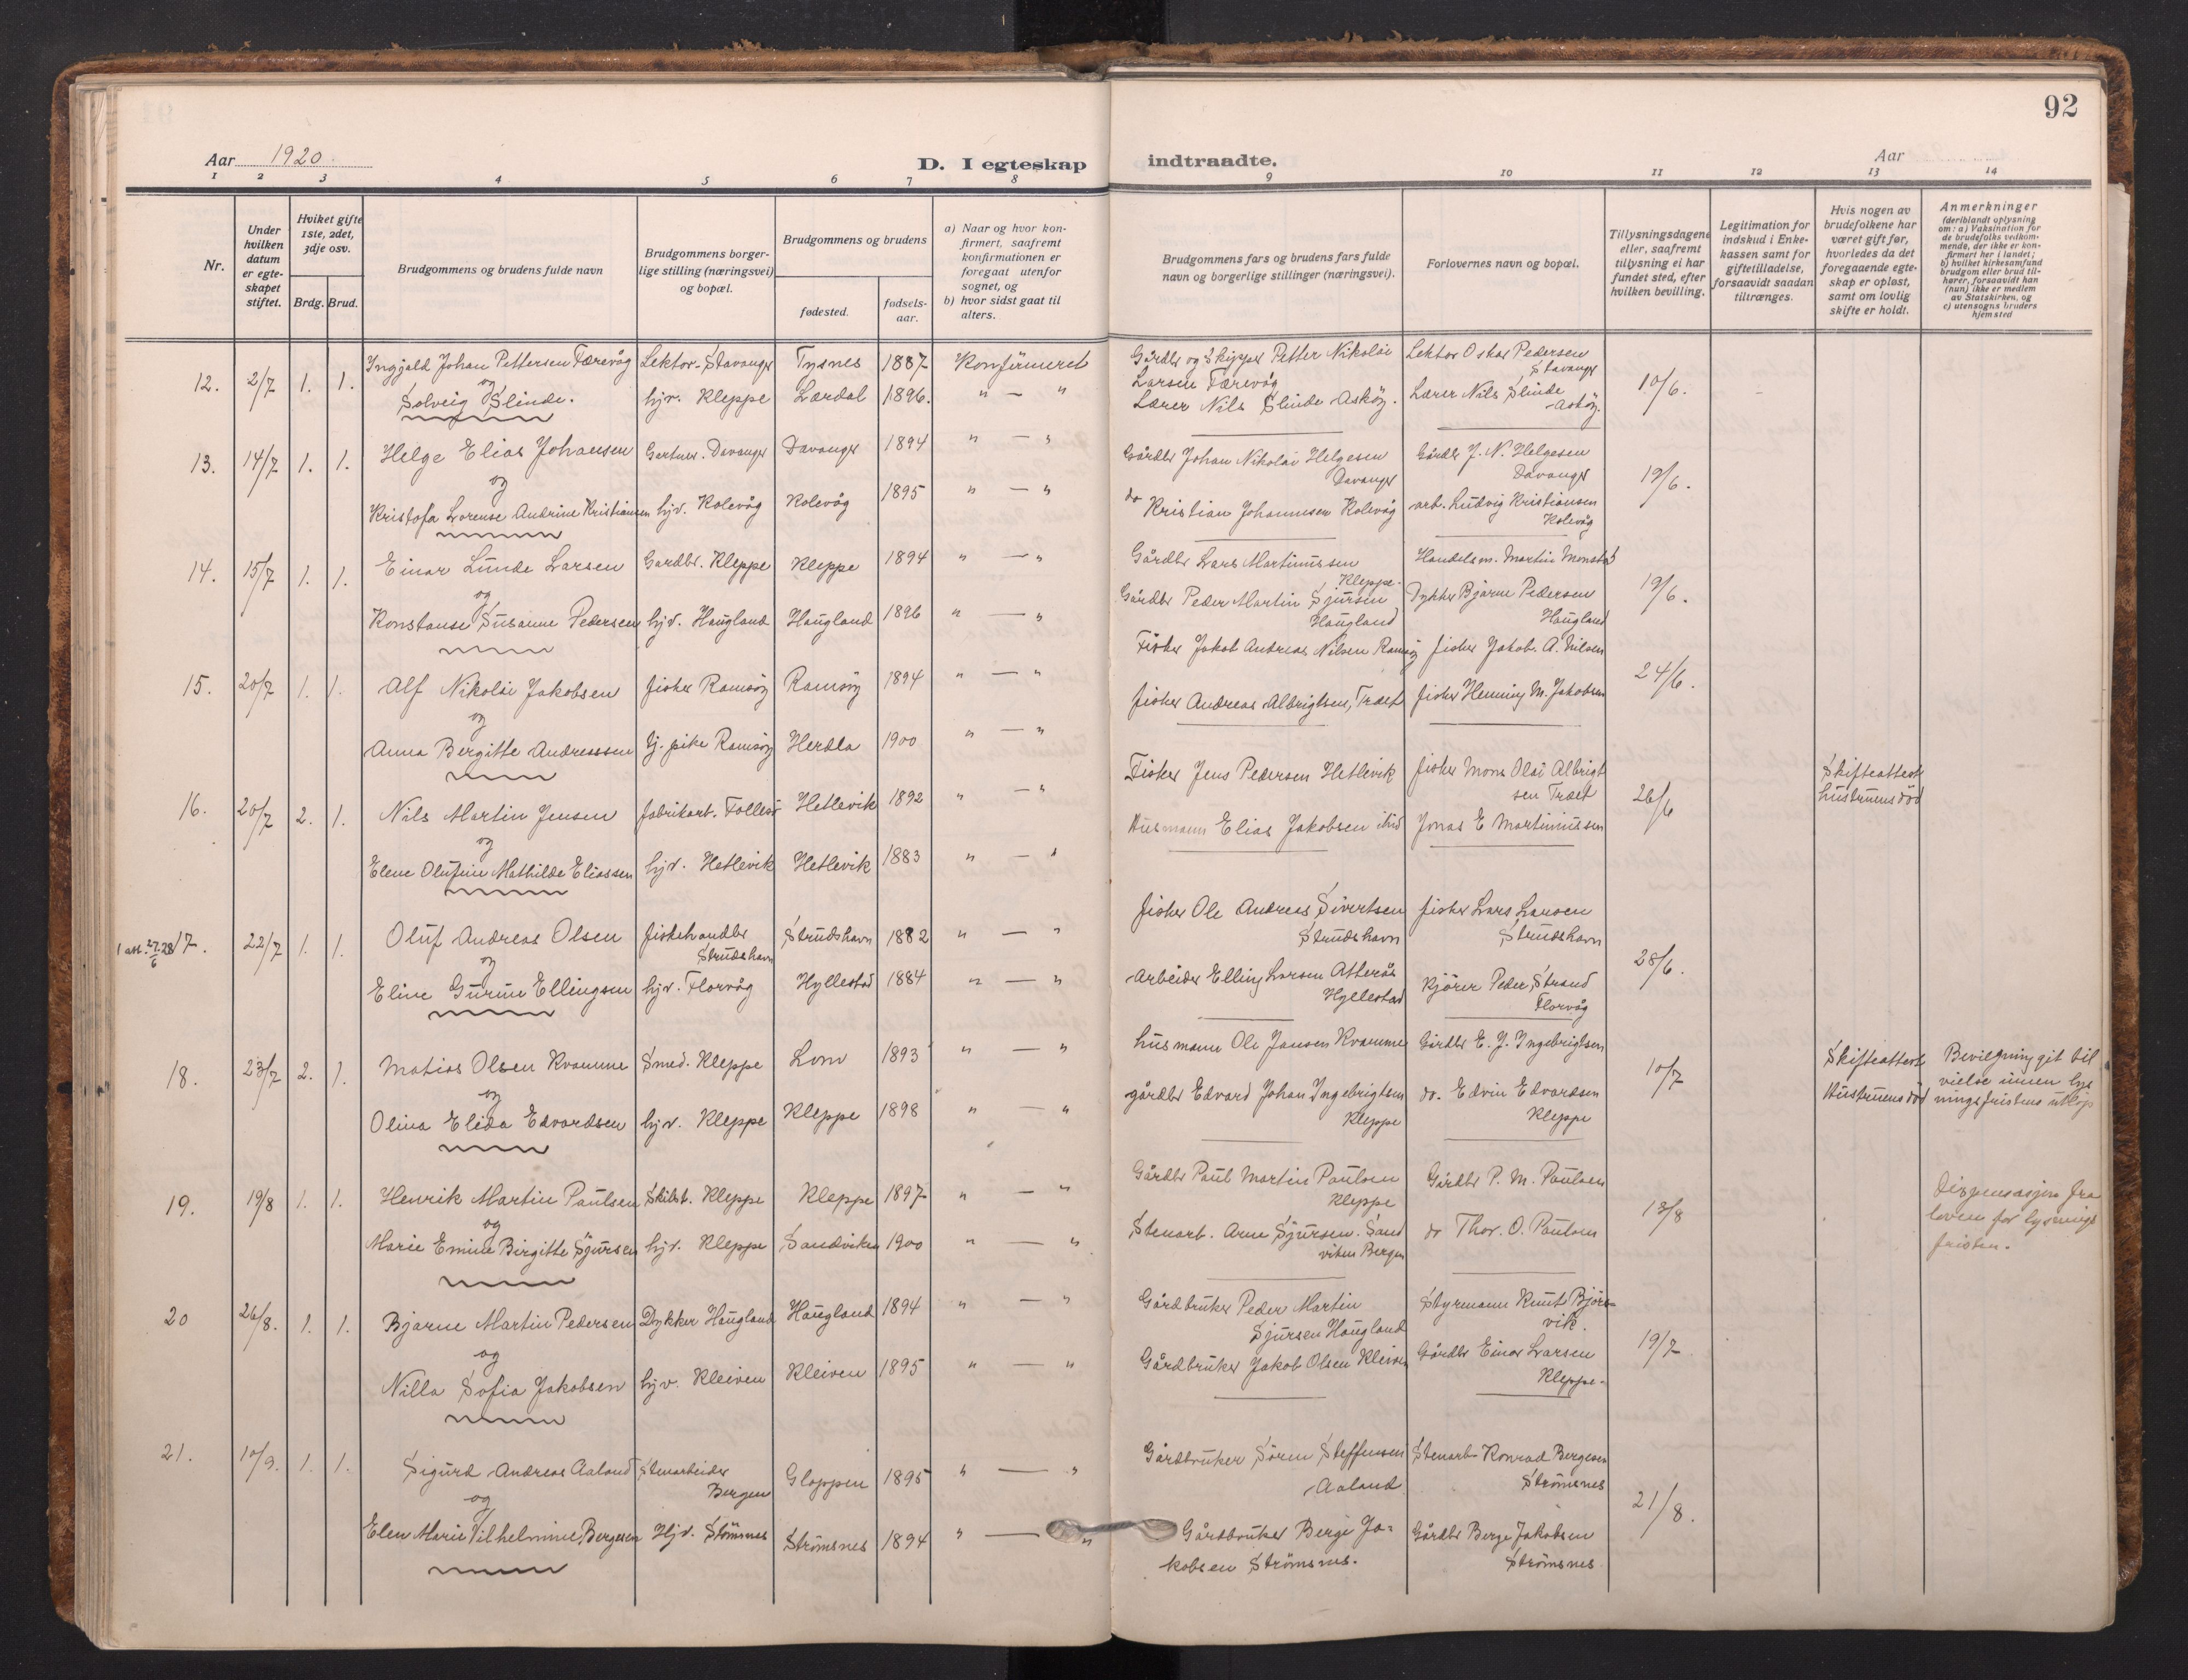 92
Aar 1920. D. I egteskap indtraadte. Aar
1 2 3 4 5 6 7 8 9 10 11 12 13 14
Nr.
Under hvilken datum er egteskapet stiftet.
Hviket gifte 1ste, 2det, 3dje osv.
Brdg. Brud.
Brudgommens og brudens fulde navn
Brudgommens borgerlige stilling (næringsvei) og bopæl.
Brudgommens og brudens
fødested.
fødselsaar.
a) Naar og hvor konfirmert, saafremt konfirmationen er foregaat utenfor sognet, og
b) hvor sidst gaat til alters.
Brudgommens fars og brudens fars fulde navn og borgerlige stillinger (næringsvei).
Forlovernes navn og bopæl.
Tillysningsdagene eller, saafremt tillysning ei har fundet sted, efter hvilken bevilling.
Legitimation for indskud i Enkekassen samt for giftetilladelse, forsaavidt saadan tiltrænges.
Hvis nogen av brudefolkene har været gift før, hvorledes da det foregaaende egteskap er opløst, samt om lovlig skifte er holdt.
Anmerkninger
(deriblandt oplysning om: a) Vaksination for de brudefolks vedkommende, der ikke er konfirmert her i landet; b) hvilket kirkesamfund brudgom eller brud tilhører, forsaavidt han (hun) ikke er medlem av Statskirken, og c) utensogns bruders hjemsted
12. 2/7 1. 1. Ingjald Johan Pettersen Færevåg Lektor - Stavanger Tysnes 1887 Konfirmeret Gårdbr og Skipper Petter Nikolai Larsen Færevåg Lektor Oskar Pedersen Stavanger 10/6.
og
Solveig Slinde. hjv. Kleppe Lærdal 1896. " — " Lærer Nils Slinde Askøy. Lærer Nils Slinde Askøy.
13. 14/7 1. 1. Helge Elias Johansen Gartner. Davanger Davanger 1894 " — " Gårdbr Johan Nikolai Helgesen Davanger Gårdbr J. N. Helgesen Davanger 19/6.
og
Kristofa Lorense Andrine Kristiansen hjv. Kolevåg Kolevåg 1895 " — " do Kristian Johannesen Kolevåg arb. Ludvig Kristiansen Kolevåg
14. 15/7 1. 1. Einar Lunde Larsen Gardbr. Kleppe Kleppe 1894 " — " Gårdbr Lars Martinussen Kleppe. Handelsm. Martin Monstad 19/6.
og
Konstanse Susanne Pedersen hjv. Haugland Haugland 1896 " — " Gårdbr Peder Martin Sjursen Haugland Dykker Bjarne Pedersen Haugland
15. 20/7 1. 1. Alf Nikolai Jakobsen fisker Ramsøy Ramsøy 1894 " — " Fisker Jakob Andreas Nilsen Ramsøy fisker Jakob. A. Nilsen 24/6.
og
Anna Bergitte Andreassen tj. pike Ramsøy Herdla 1900 " — " fisker Andreas Albrigtsen, Træet fisker Henning M. Jakobsen
16. 20/7 2. 1. Nils Martin Jensen fabrikarb. Follesø Hetlevik 1892 " — " Fisker Jens Pedersen Hetlevik fisker Mons Olai Albrigtsen Træet 26/6 Skifteattest hustruens død
og
Elene Olufine Mathilde Eliassen hjv. Hetlevik Hetlevik 1883 " — " Husmann Elias Jakobsen ibid Jonas E Martinussen
1 att. 27/6 28 17. 22/7 1. 1. Oluf Andreas Olsen fiskehandler Strudshavn Strudshavn 1882 " — " fisker Ole Andreas Sivertsen Strudshavn fisker Lars Larsen Strudshavn 28/6.
og
Eline Gurine Ellingsen hjv. Florvåg Hyllestad 1884 " — " Arbeider Elling Larsen Atterås Hyllestad Kjører Peder Strand Florvåg
18. 23/7 2. 1. Matias Olsen Kvamme Smed. Kleppe Lom 1893 " — " husmann Ole Jansen Kvamme Gårdbr E. J. Ingebrigtsen 10/7 Skifteattest Hustruens død Bevilgning git til vielse innen lysningsfristens utløp
og
Olina Elida Edvardsen hjv. Kleppe Kleppe 1898 " — " gårdbr Edvard Johan Ingebrigtsen Kleppe do. Edvin Edvardsen Kleppe
19. 19/8 1. 1. Henrik Martin Paulsen Skibst. Kleppe Kleppe 1897 " — " Gårdbr Paul Martin Paulsen Kleppe Gårdbr P. M. Paulsen 13/8 Dispensasjon fra loven for lysningsfristen.
og
Marie Emine Birgitte Sjursen hjv. Kleppe Sandviken 1900 " — " Stenarb. Arne Sjursen. Sandviken Bergen do Thor. O. Paulsen
20 26/8. 1. 1. Bjarne Martin Pedersen Dykker Haugland Haugland 1894 " — " Gårdbruker Peder Martin Sjursen Haugland Styrmann Knut Bjørsvik. 19/7
og
Nilla Sofia Jakobsen hjv. Kleiven Kleiven 1895 " — " Gårdbruker Jakob Olsen Kleiven Gårdbr Einar Larsen Kleppe.
21. 10/9. 1. 1. Sigurd Andreas Aaland Stenarbeider Bergen Gloppen 1895 " — " Gårdbruker Søren Steffensen Aaland Stenarb. Konrad Bergesen Strømsnes 21/8.
og
Elen Marie Vilhelmine Bergesen Hjv. Stømsnes Strømsnes 1894 " — " Gårdbruker Berge Jakobsen Strømsnes. Gårdbr Berge Jakobsen Strømsnes